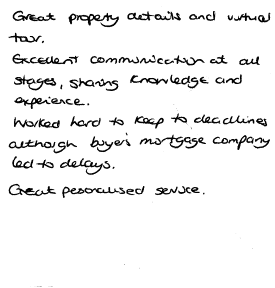 Great property details and virtual
tour.
Excellent communication at all
stages, sharing knowledge and
experience.
Worked hard to keep to deadlines
although buyer's mortgage company
led to delays.
Great personalised service.